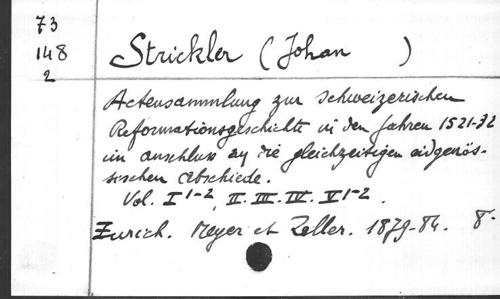 73
148
2
Strickler (Johan )
Actensammlung zur Schweizerischen
Reformationsgeschichte in den Jahren 1521-32
im anschluss an die gleichzeitigen eidgenös-
sischen Abschiede.
Vol. I 1-2, II. III. IV. V 1-2.
Zurich. Meyer et Zeller. 1879-84. 8.